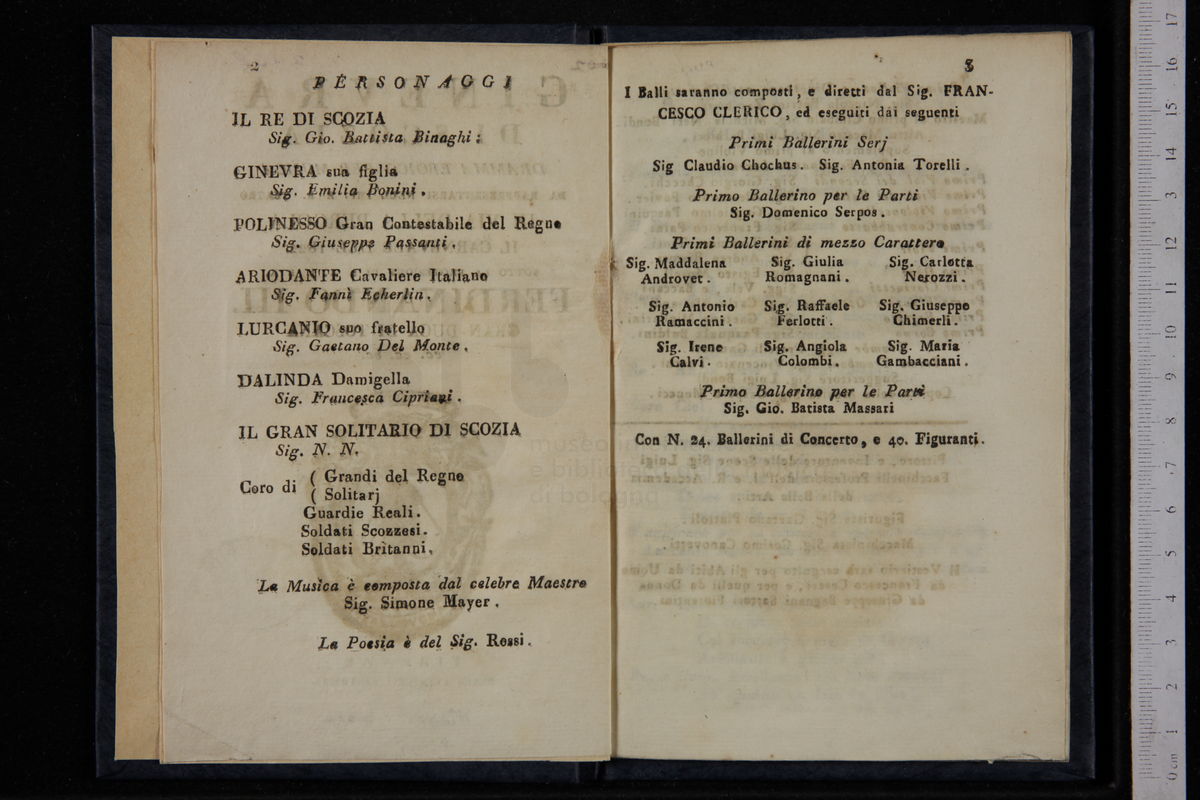 2
PERSONAGGI
IL RE DI SCOZIA
Sig. Gio. Battista Binaghi;
GINEVRA sua figlia
Sig. Emilia Bonini.
POLINESSO Gran Contestabile del Regno
Sig. Giuseppe Passanti.
ARIODANTE Cavaliere Italiano
Sig. Fannì Echerlin.
LURCANIO suo fratello
Sig. Gaetano Del Monte.
DALINDA Damigella
Sig. Francesca Cipriani.
IL GRAN SOLITARIO DI SCOZIA
Sig. N. N.
Coro di ( Grandi del Regno
( Solitarj
Guardie Reali.
Soldati Scozzesi.
Soldati Britanni.
La Musica è composta dal celebre Maestro
Sig. Simone Mayer.
La Poesia è del Sig. Rossi.
3
I Balli saranno composti, e diretti dal Sig. FRAN-
CESCO CLERICO, ed eseguiti dai seguenti
Primi Ballerini Serj
Sig Claudio Chochus. Sig. Antonia Torelli.
Primo Ballerino per le Parti
Sig. Domenico Serpos.
Primi Ballerini di mezzo Carattere
Sig. Maddalena Sig. Giulia Sig. Carlotta
Androvet. Romagnani. Nerozzi.
Sig. Antonio Sig. Raffaele Sig. Giuseppe
Ramaccini. Ferlotti. Chimerli.
Sig. Irene Sig. Angiola Sig. Maria
Calvi. Colombi. Gambacciani.
Primo Ballerino per le Parti
Sig. Gio. Batista Massari
Con N. 24. Ballerini di Concerto, e 40. Figuranti.
museo in
e biblio
di bologna
0 cm 1 2 3 4 5 6 7 8 9 10 11 12 13 14 15 16 17